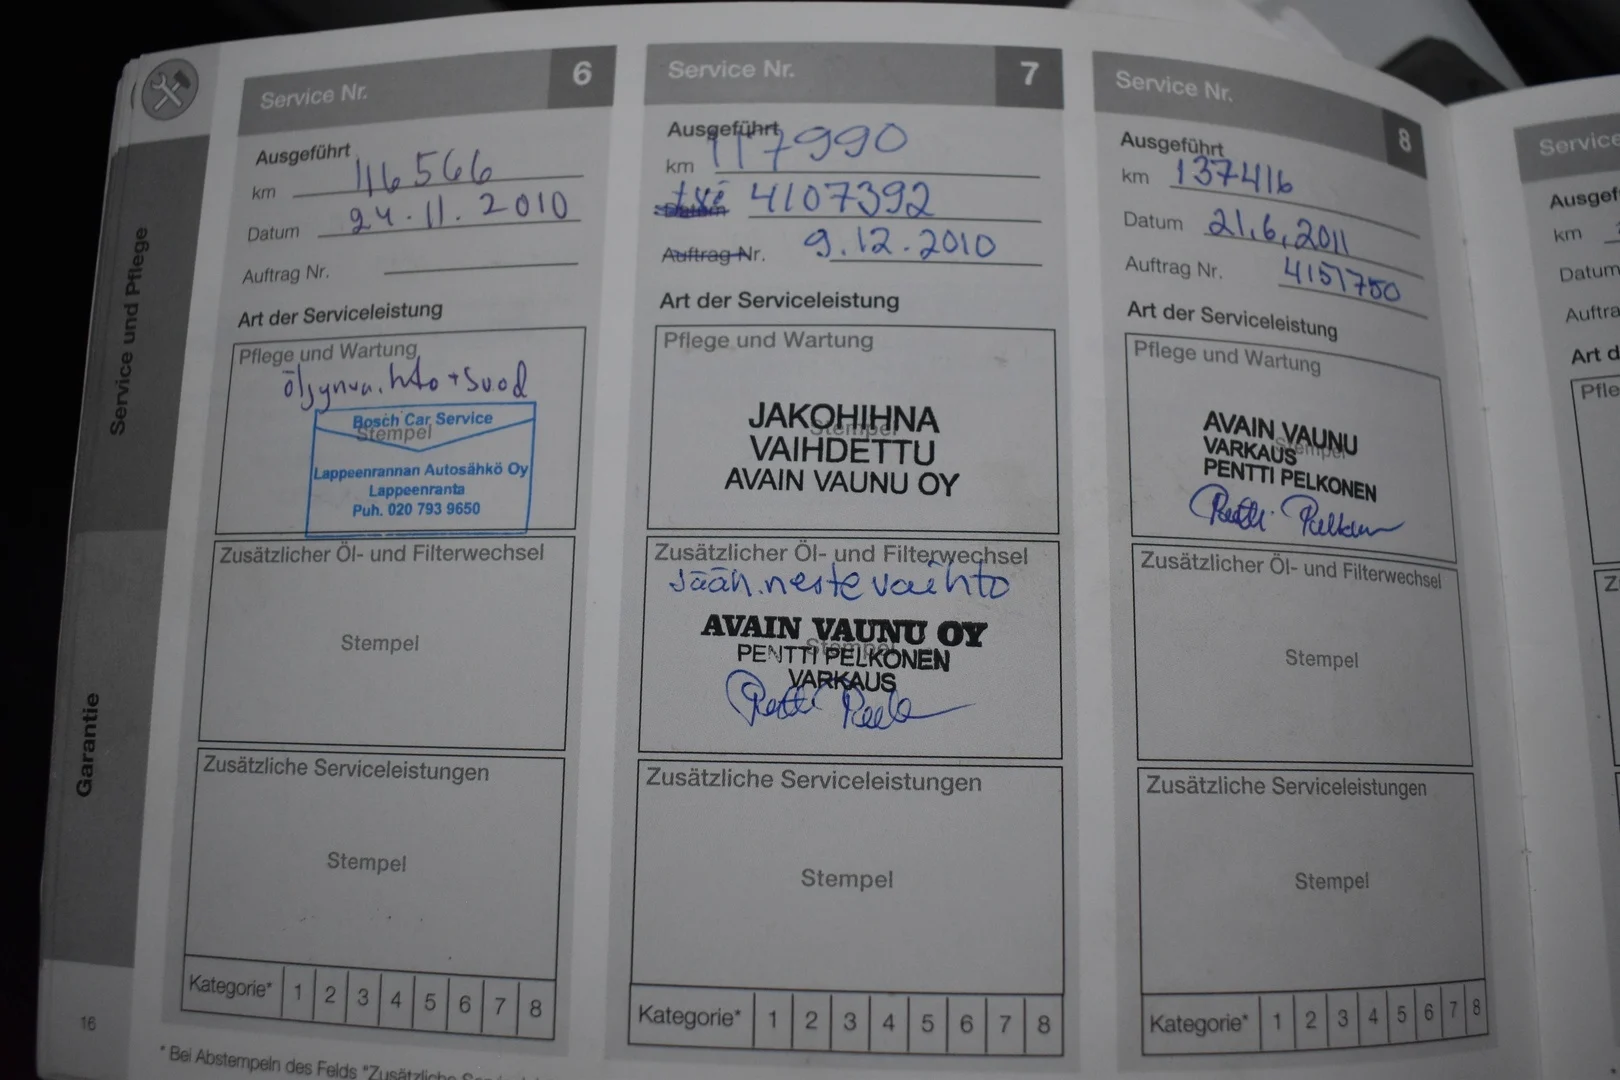 Service und Pflege
Garantie
16
Service Nr. 6
Ausgeführt
km 116566
Datum 24.11.2010
Auftrag Nr.
Art der Serviceleistung
Pflege und Wartung
öljynva.hto + suod
Bosch Car Service
Stempel
Lappeenrannan Autosähkö Oy
Lappeenranta
Puh. 020 793 9650
Zusätzlicher Öl- und Filterwechsel
Stempel
Zusätzliche Serviceleistungen
Stempel
Kategorie* 1 2 3 4 5 6 7 8
* Bei Abstempeln des Felds "Zusätzliche
Service Nr. 7
Ausgeführt
km 117990
Datum 4107392
Auftrag Nr. 9.12.2010
Art der Serviceleistung
Pflege und Wartung
JAKOHIHNA
Stempel
VAIHDETTU
AVAIN VAUNU OY
Zusätzlicher Öl- und Filterwechsel
Jääh.neste vaihto
AVAIN VAUNU OY
Stempel
PENTTI PELKONEN
VARKAUS
Zusätzliche Serviceleistungen
Stempel
Kategorie* 1 2 3 4 5 6 7 8
Service Nr. 8
Ausgeführt
km 137416
Datum 21.6.2011
Auftrag Nr. 4151750
Art der Serviceleistung
Pflege und Wartung
AVAIN VAUNU
Stempel
VARKAUS
PENTTI PELKONEN
Zusätzlicher Öl- und Filterwechsel
Stempel
Zusätzliche Serviceleistungen
Stempel
Kategorie* 1 2 3 4 5 6 7 8
Service
Ausgef
km
Datum
Auftra
Art d
Pfle
Z